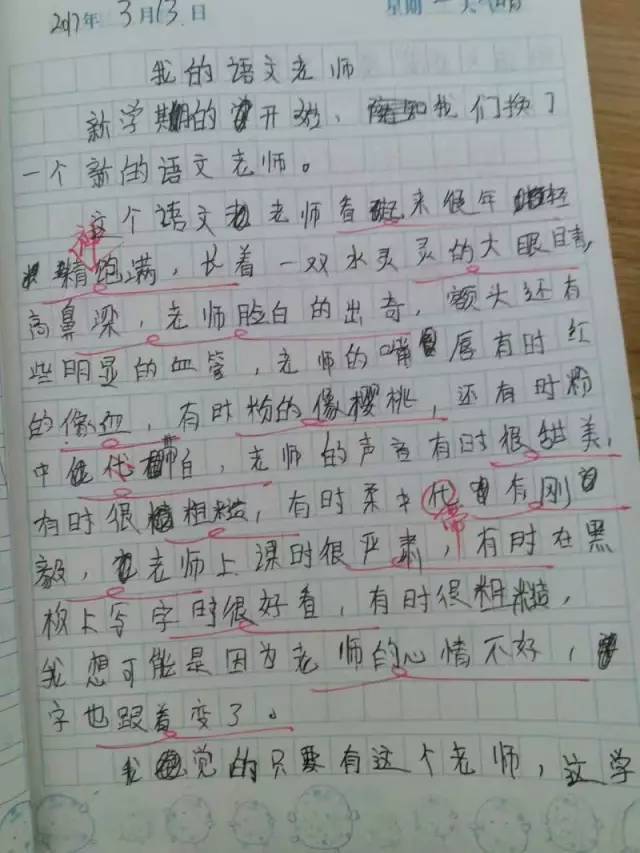 2017年 3月13日 星期一 天气晴
我的语文老师
新学期的开始、得知我们换了
一个新的语文老师。
这个语文老师看起来很年轻
精神饱满,长着一双水灵灵的大眼睛,
高鼻梁,老师脸白的出奇,额头还有
些明显的血管,老师的嘴唇有时红
的像血,有时粉的像樱桃,还有时粉
中代白,老师的声音有时很甜美,
有时很粗糙,有时柔中代带有刚
毅,老师上课时很严肃,有时在黑
板上写字时很好看,有时很粗糙,
我想可能是因为老师的心情不好,
字也跟着变了。
我觉的只要有这个老师,这学